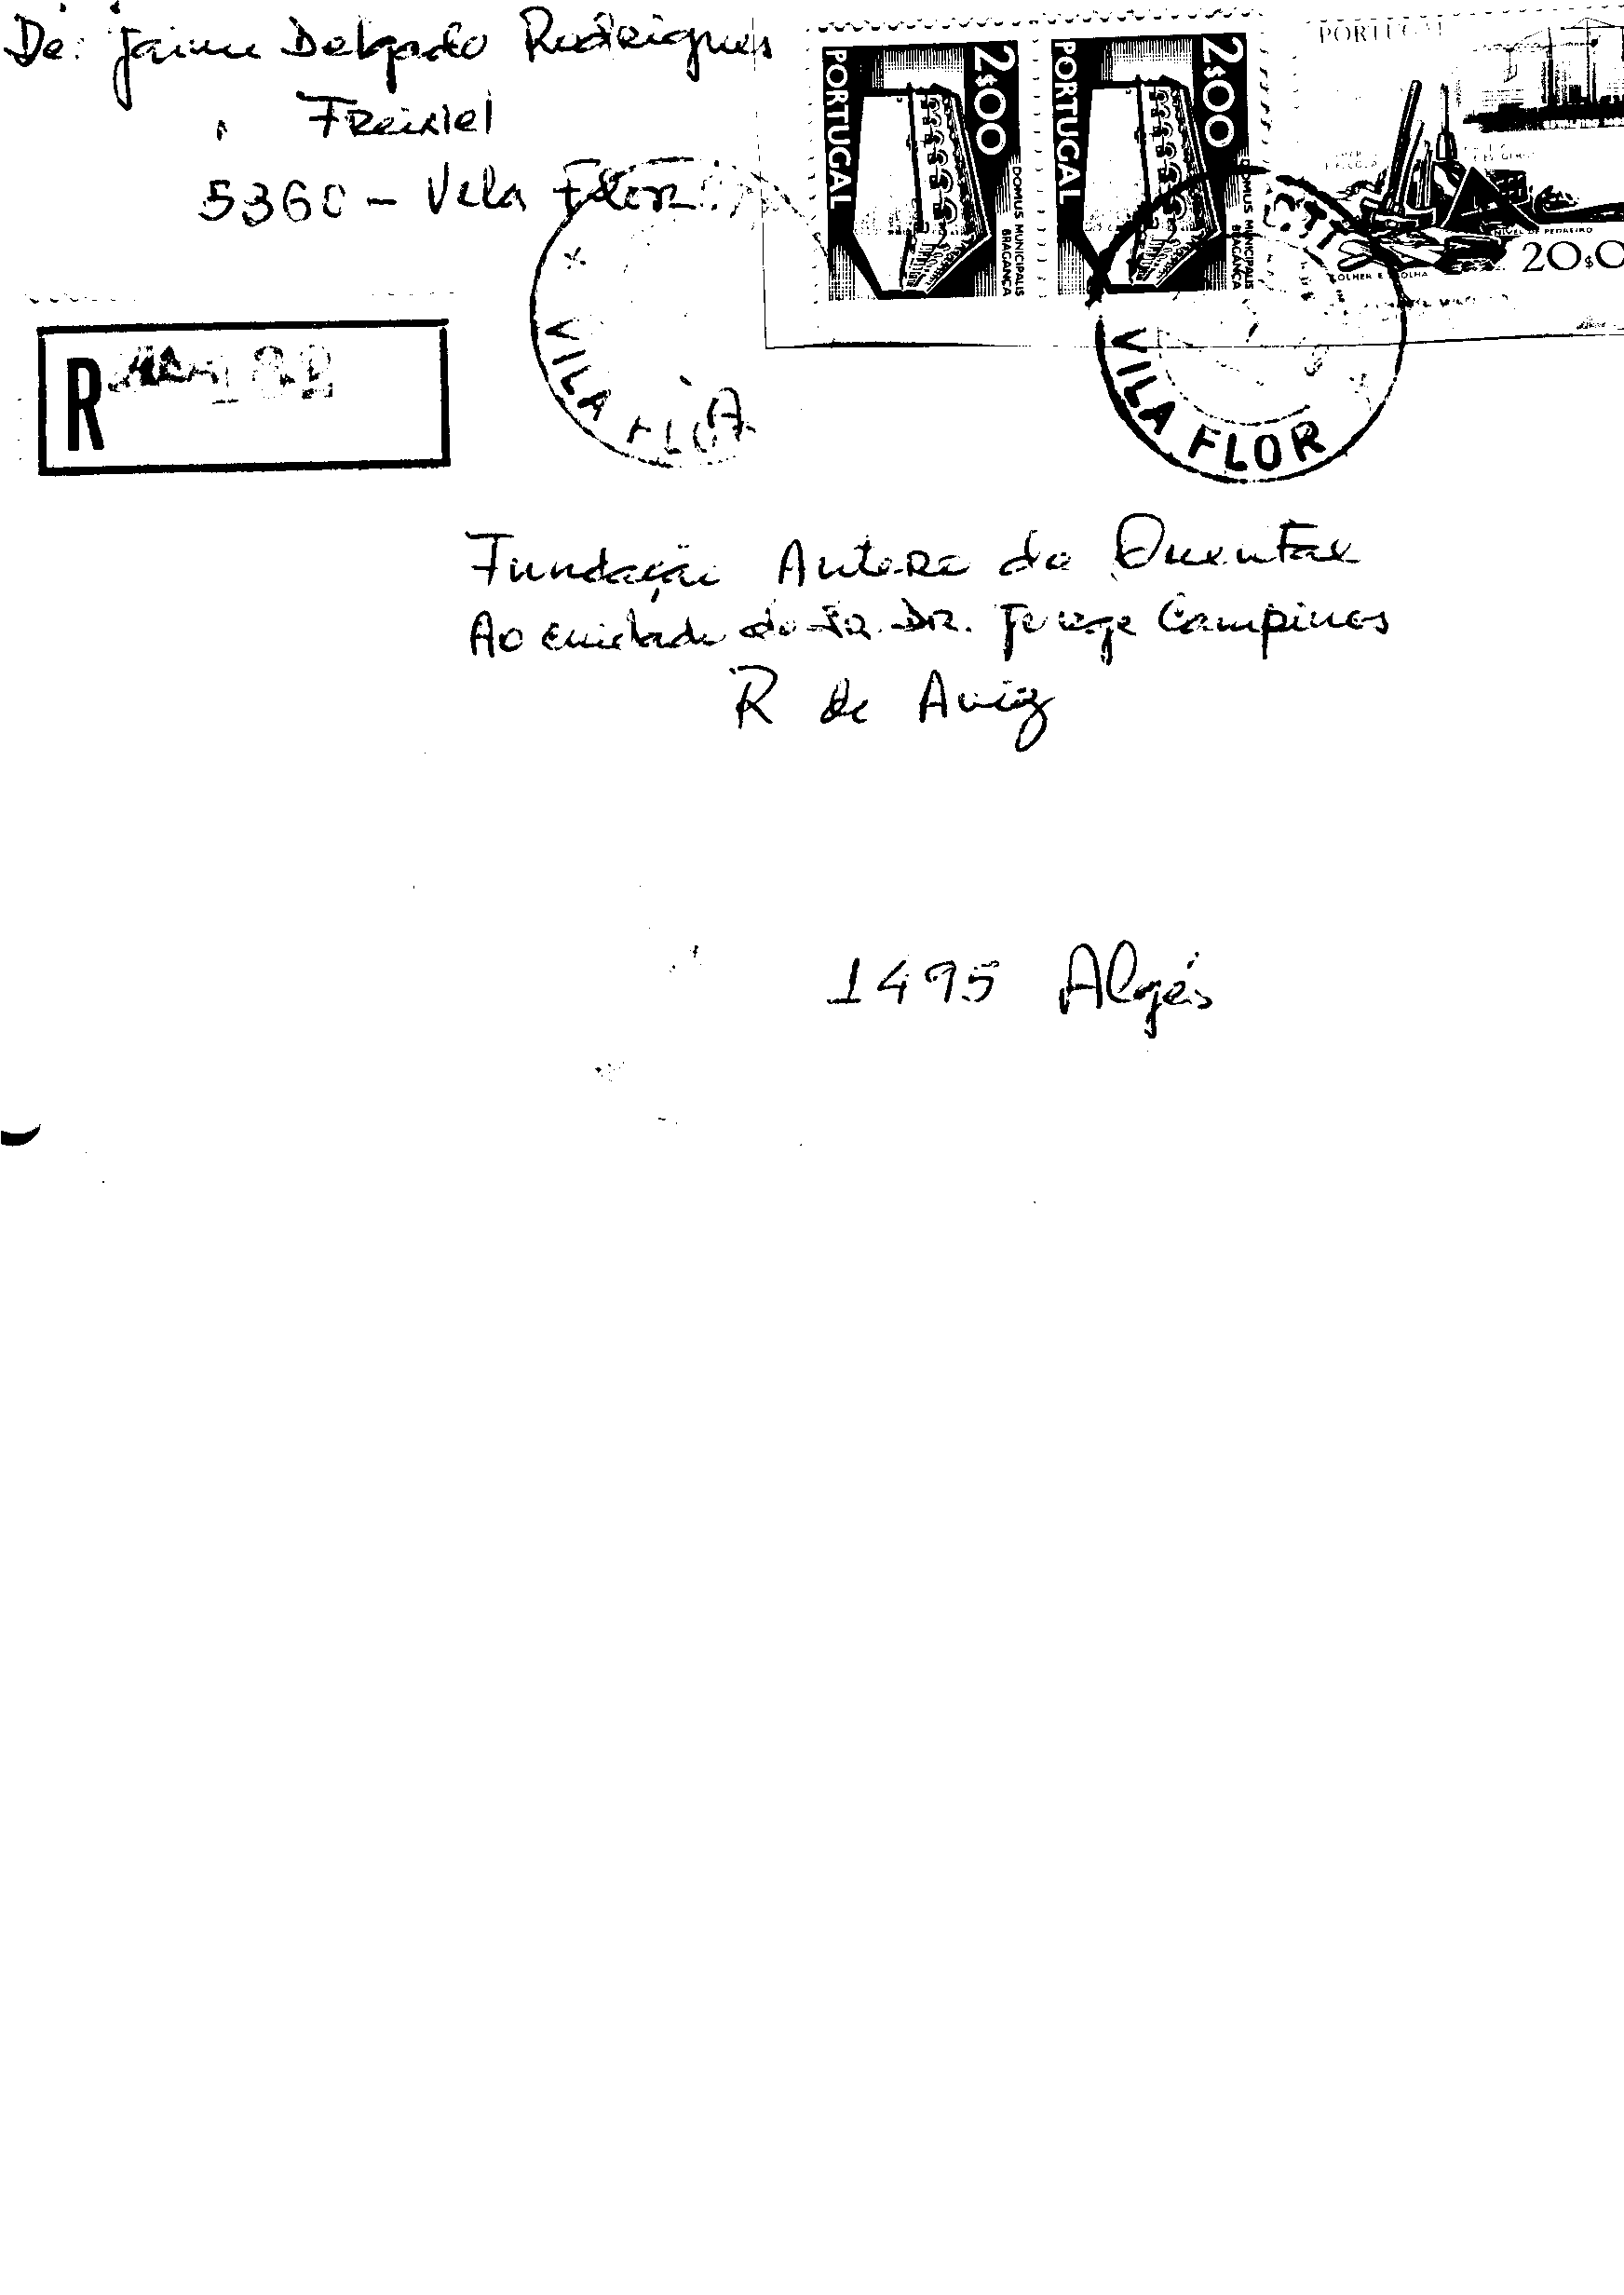 De: Jaime Delgado Rodrigues
Freixiel
5360 - Vila Flor
PORTUGAL
2$00
DOMUS MUNICIPALIS
BRAGANÇA
PORTUGAL
2$00
DOMUS MUNICIPALIS
BRAGANÇA
PORTUGAL
NIVEL DE PEDREIRO
COLHER E
20$0
R
VILA FLOR
VILA FLOR
Fundação Antero de Quental
Ao cuidado do Sr. Dr. Jorge Campinos
R de Aviz
1495 Algés